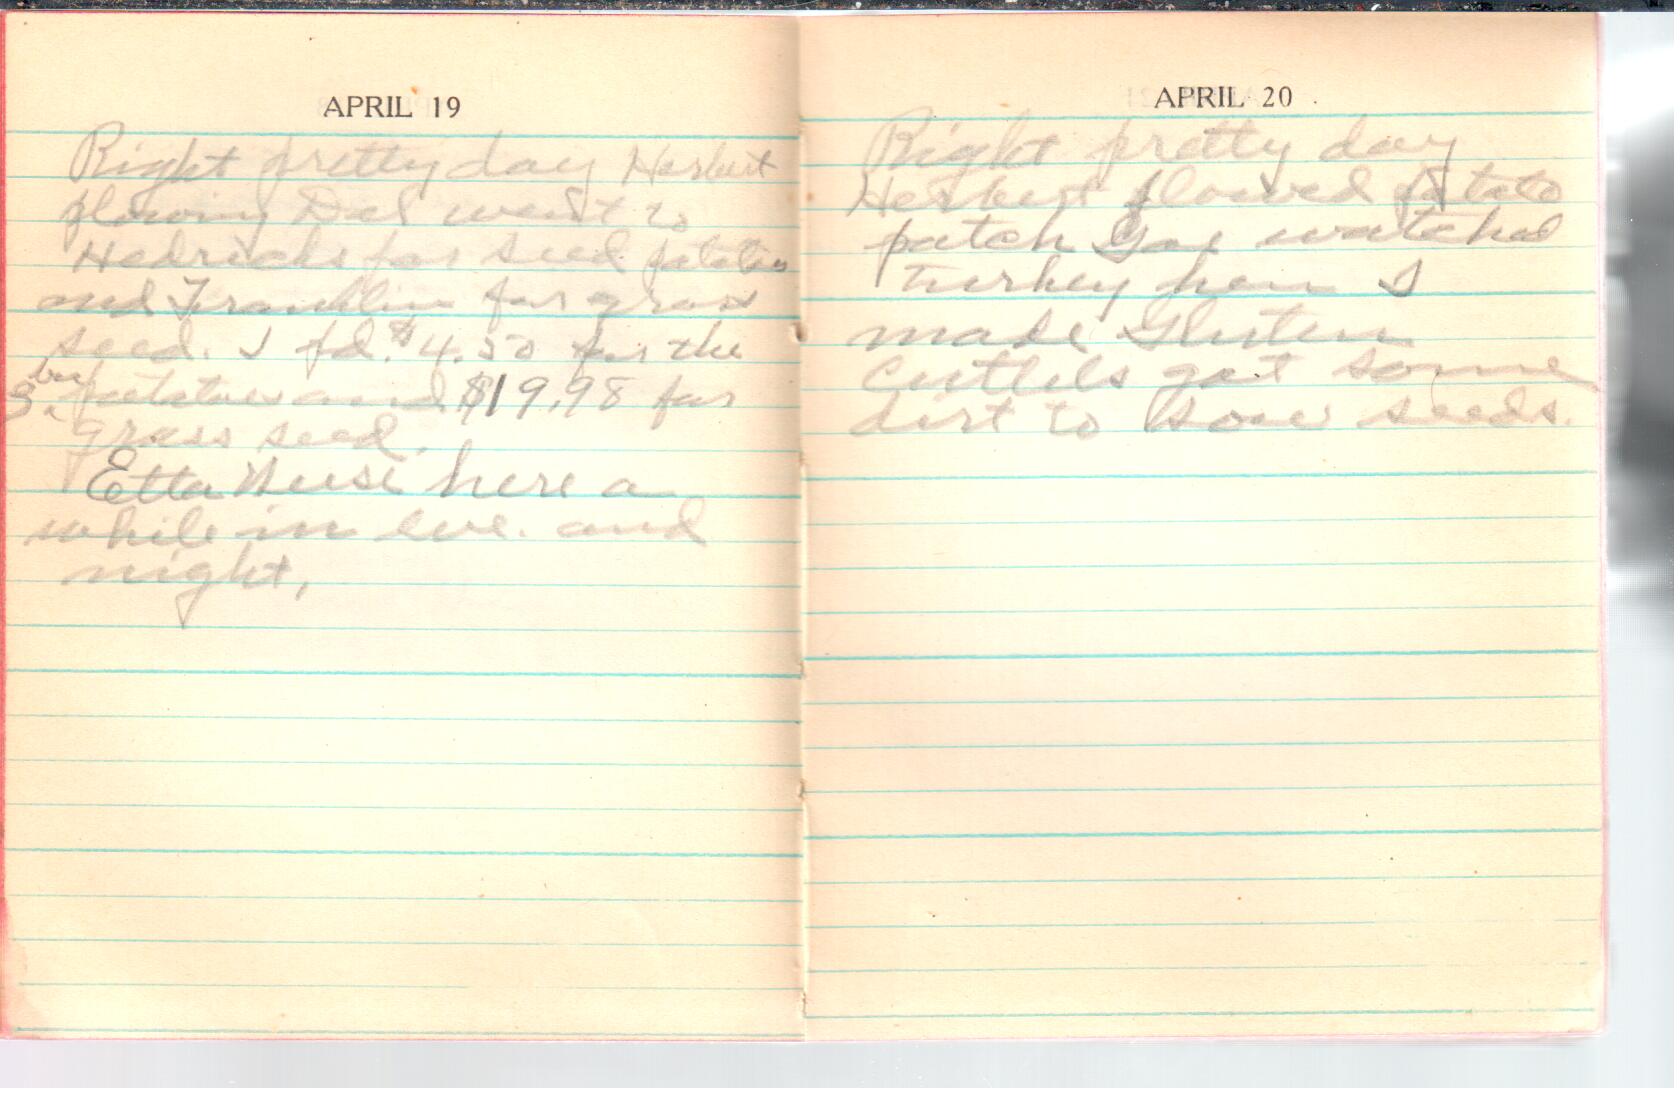 APRIL 19
Right pretty day Herbert
plowing Del went to
Hedricks for seed potatoes
and Franklin for grass
seed. I pd. $4.50 for the
3 bu potatoes and $19.98 for
grass seed.
Etta here a
while in eve. and
night,
APRIL 20
Right pretty day
Herbert plowed potato
patch watched
turkey hen I
made Glutern
Cutlets got some
dirt to sow seeds.